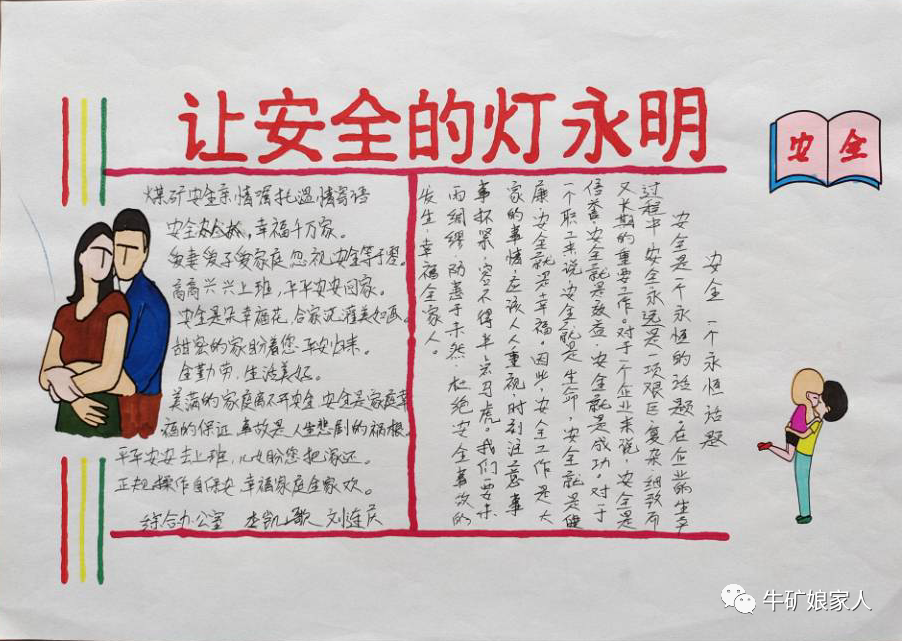 让安全的灯永明
安全
煤矿安全亲情嘱托温情寄语
安全，幸福千万家。
爱妻爱子爱家庭忽视安全等于零。
高高兴兴上班，平平安安回家。
安全是朵幸福花，合家浇灌美如画。
甜蜜的家盼着您平安归来。
全勤劳，生活美好。
美满的家庭离不开安全，安全是家庭幸
福的保证，事故是人生悲剧的祸根。
平平安安去上班，儿女盼您把家还。
正规操作自保安 幸福家庭全家欢。
综合办公室 李凯歌 刘连庆
安全 一个永恒话题
安全是一个永恒的话题，在企业的生产
过程中，安全永远是一项艰巨、复杂、细致而
又长期的重要工作。对于一个企业来说，安全是
信誉，安全就是效益，安全就是成功。对于
一个职工来说，安全就是生命，安全就是健
康，安全就是幸福。因此，安全工作是大
家的事情，应该人人重视，时刻注意，事
事抓紧，容不得半点马虎。我们要未
雨绸缪，防患于未然，杜绝安全事故的
发生，幸福全家人。
牛矿娘家人